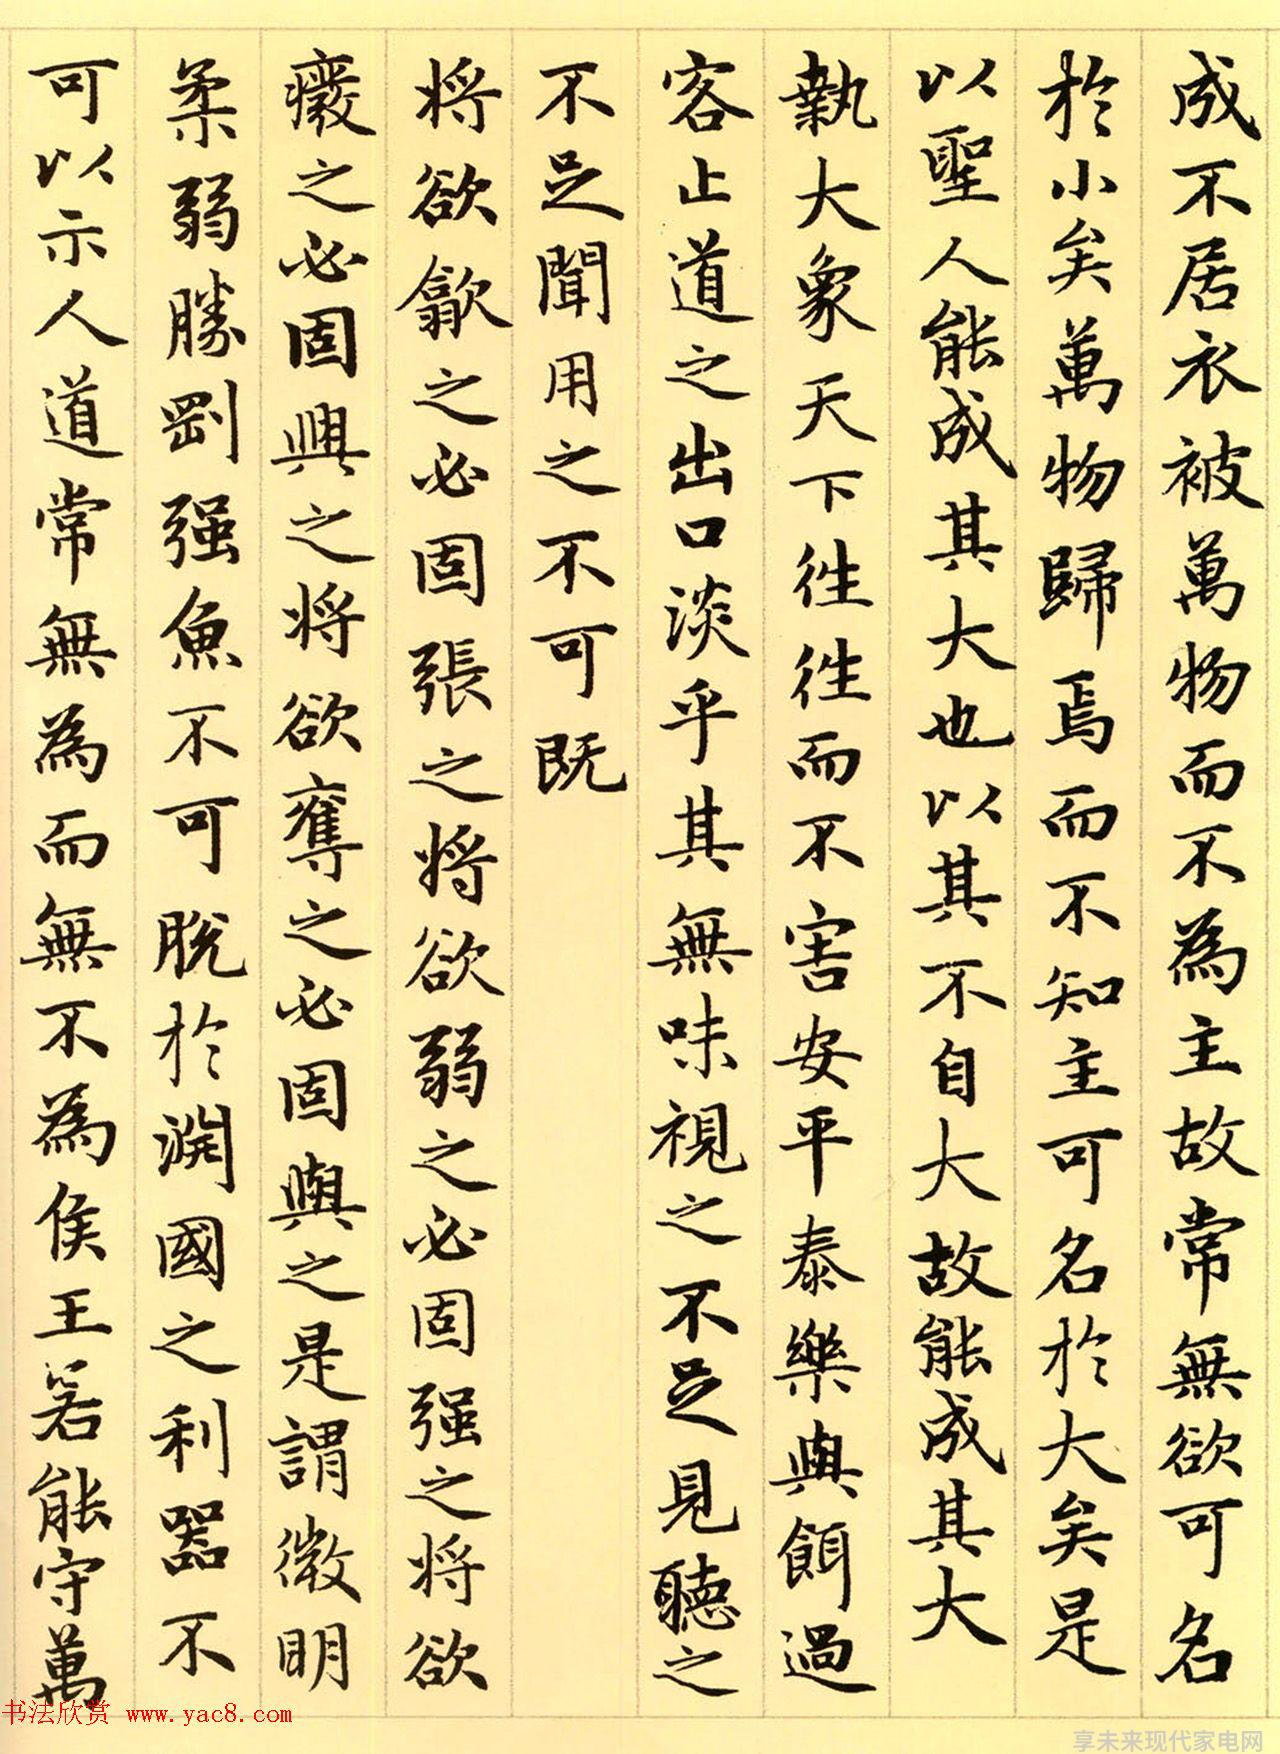 成不居衣被萬物而不為主故常無欲可名
於小矣萬物歸焉而不知主可名於大矣是
以聖人能成其大也以其不自大故能成其大
執大象天下往往而不害安平泰樂與餌過
客止道之出口淡乎其無味視之不足見聽之
不足聞用之不可既
将欲歙之必固張之将欲弱之必固强之将欲
癈之必固興之将欲奪之必固與之是謂微明
柔弱勝剛强魚不可脫於淵國之利器不
可以示人道常無為而無不為侯王若能守萬
书法欣赏 www.yac8.com
享未来现代家电网